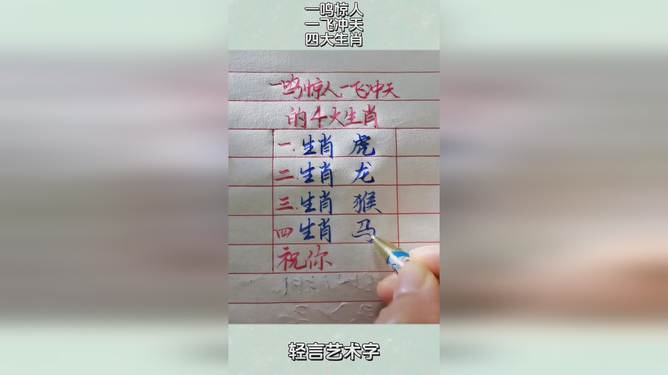 一鸣惊人
一飞冲天
四大生肖
一鸣惊人.一飞冲天
的4大生肖
一.生肖 虎
二.生肖 龙
三.生肖 猴
四 生肖 马
祝你
轻言艺术字